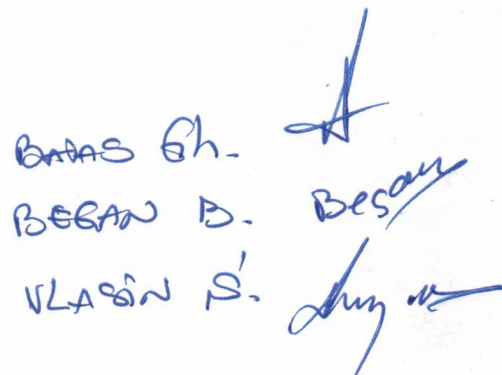 BATAS Gh.
BEGAN B. Began
VLASÎN Ș.